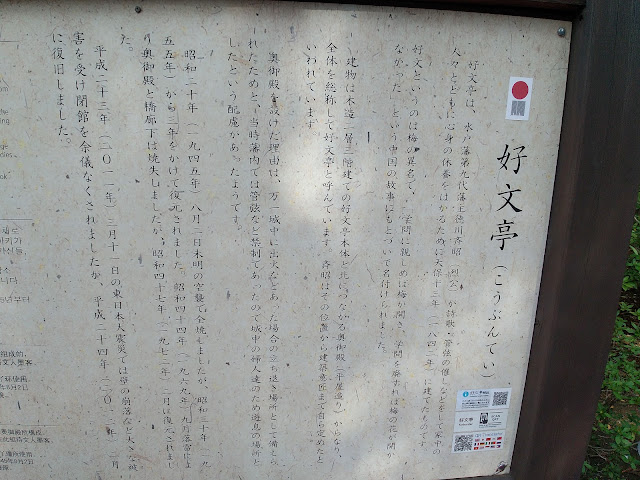 好文亭（こうぶんてい）
好文亭は、水戸藩第九代藩主徳川斉昭（烈公）が詩歌、管弦の催しなどをして家中の
人々とともに心身の休養をはかるために天保十三年（一八四二年）に建てたものです。
好文というのは梅の異名で、「学問に親しめば梅が開き、学問を廃すれば梅の花が開か
なかった」という中国の故事にもとづいて名付けられました。
建物は木造二層三階建ての好文亭本体と北につながる奥御殿（平屋造り）からなり、
全体を総称して好文亭と呼んでいます。斉昭はその位置から建築意匠まで自ら定めたと
いわれています。
奥御殿を設けた理由は、万一城中に出火などあった場合の立ち退き場所として備えら
れたためと、当時藩内では管弦など禁制であったので城中の婦人達のため遊息の場所と
したという配慮があったようです。
昭和二十年（一九四五年）八月二日未明の空襲で全焼しましたが、昭和三十年（一九
五五年）から三年をかけて復元されました。昭和四十四年（一九六九年）九月落雷によ
り奥御殿と橋廊下は焼失しましたが、昭和四十七年（一九七二年）二月に復元されまし
た。
平成二十三年（二〇一一年）三月十一日の東日本大震災では壁の崩落など大きな被
害を受け閉館を余儀なくされましたが、平成二十四年（二〇一二年）二月
に復旧しました。
好文亭